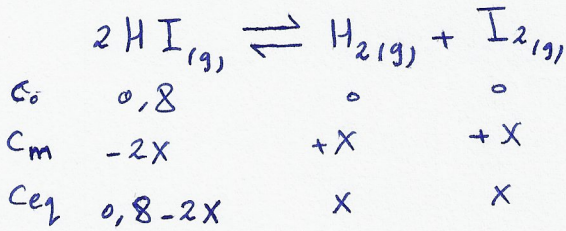 2 H I (g) ⇌ H2 (g) + I2 (g)
C₀ 0,8 0 0
Cm -2X +X +X
Ceq 0,8-2X X X